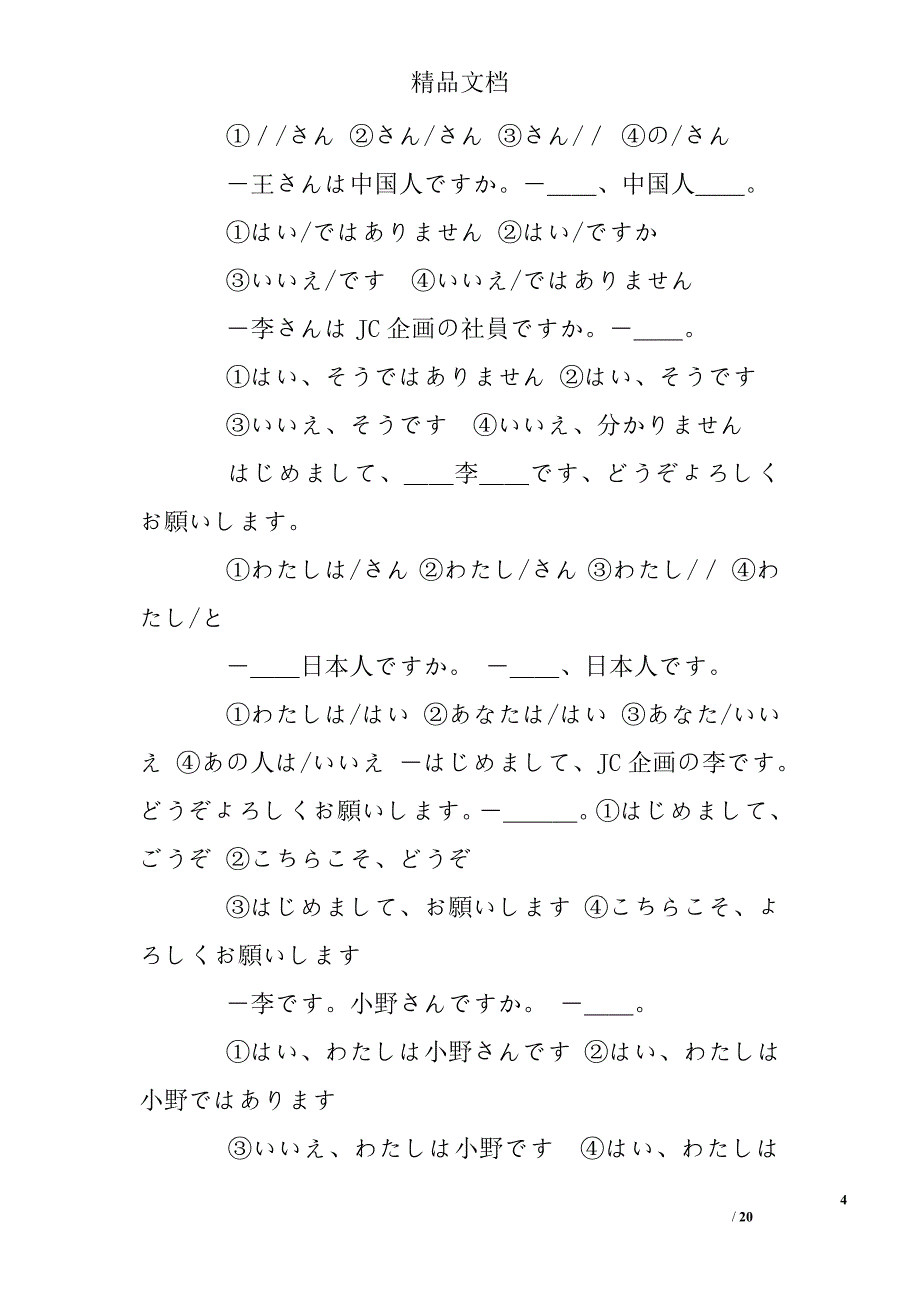 精品文档
①//さん ②さん/さん ③さん// ④の/さん
－王さんは中国人ですか。－____、中国人____。
①はい/ではありません ②はい/ですか
③いいえ/です ④いいえ/ではありません
－李さんは JC 企画の社員ですか。－____。
①はい、そうではありません ②はい、そうです
③いいえ、そうです ④いいえ、分かりません
はじめまして、____李____です、どうぞよろしく
お願いします。
①わたしは/さん ②わたし/さん ③わたし// ④わ
たし/と
－____日本人ですか。 －____、日本人です。
①わたしは/はい ②あなたは/はい ③あなた/いい
え ④あの人は/いいえ －はじめまして、JC 企画の李です。
どうぞよろしくお願いします。－______。①はじめまして、
ごうぞ ②こちらこそ、どうぞ
③はじめまして、お願いします ④こちらこそ、よ
ろしくお願いします
－李です。小野さんですか。 －____。
①はい、わたしは小野さんです ②はい、わたしは
小野ではあります
③いいえ、わたしは小野です ④はい、わたしは
4
/ 20